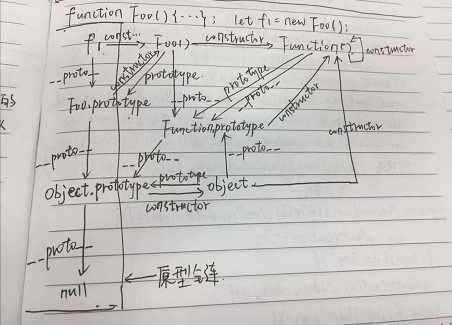 function Foo() {...}; let f1 = new Foo();
f1 const... Foo() constructor Function() constructor
__proto__ constructor prototype prototype
Foo.prototype __proto__ constructor
Function.prototype constructor
__proto__ __proto__ __proto__
Object.prototype prototype Object
constructor
__proto__
null 原型链